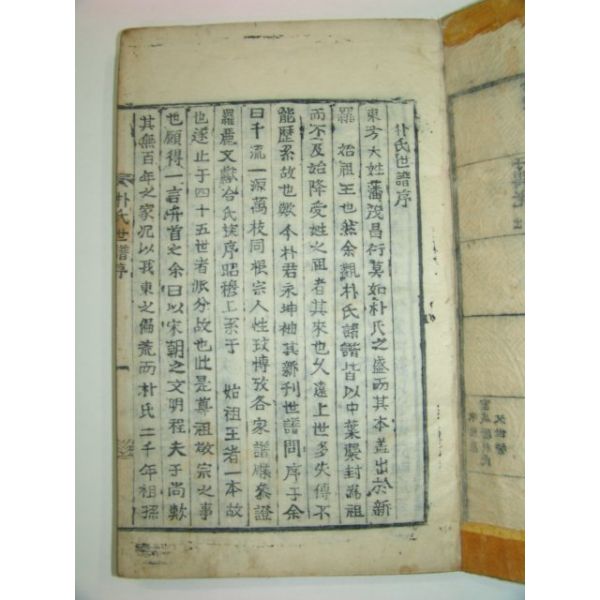 朴氏世譜序
東方大姓蕃茂昌衍莫如朴氏之盛而其本盖出於新
羅 始祖王也然余觀朴氏諸譜皆以中葉襲封爲祖
而不及始降爰姓之祖者其來也久遠上世多失傳不
能歷系故也歟今朴君永坤袖其新刊世譜問序于余
曰千流一源萬枝同根宗人性玟博攷各家譜牒叅證
羅麗文獻合氏族序昭穆上系于 始祖王者一本故
也逐止于四十五世者派分故也此是尊祖敬宗之事
也願得一言弁首之余曰以宋朝之文明程夫子尚歎
其無百年之家况以我東之偏荒而朴氏二千年祖孫
朴氏世譜序
一